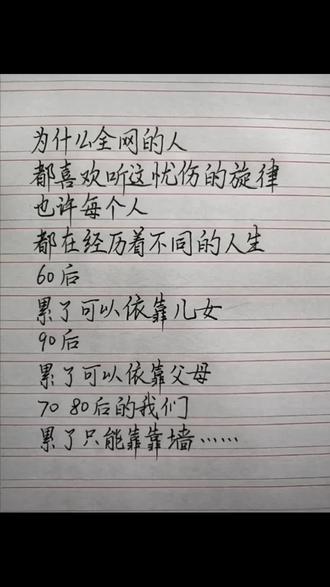 为什么全网的人
都喜欢听这忧伤的旋律
也许每个人
都在经历着不同的人生
60后
累了可以依靠儿女
90后
累了可以依靠父母
70 80后的我们
累了只能靠靠墙……